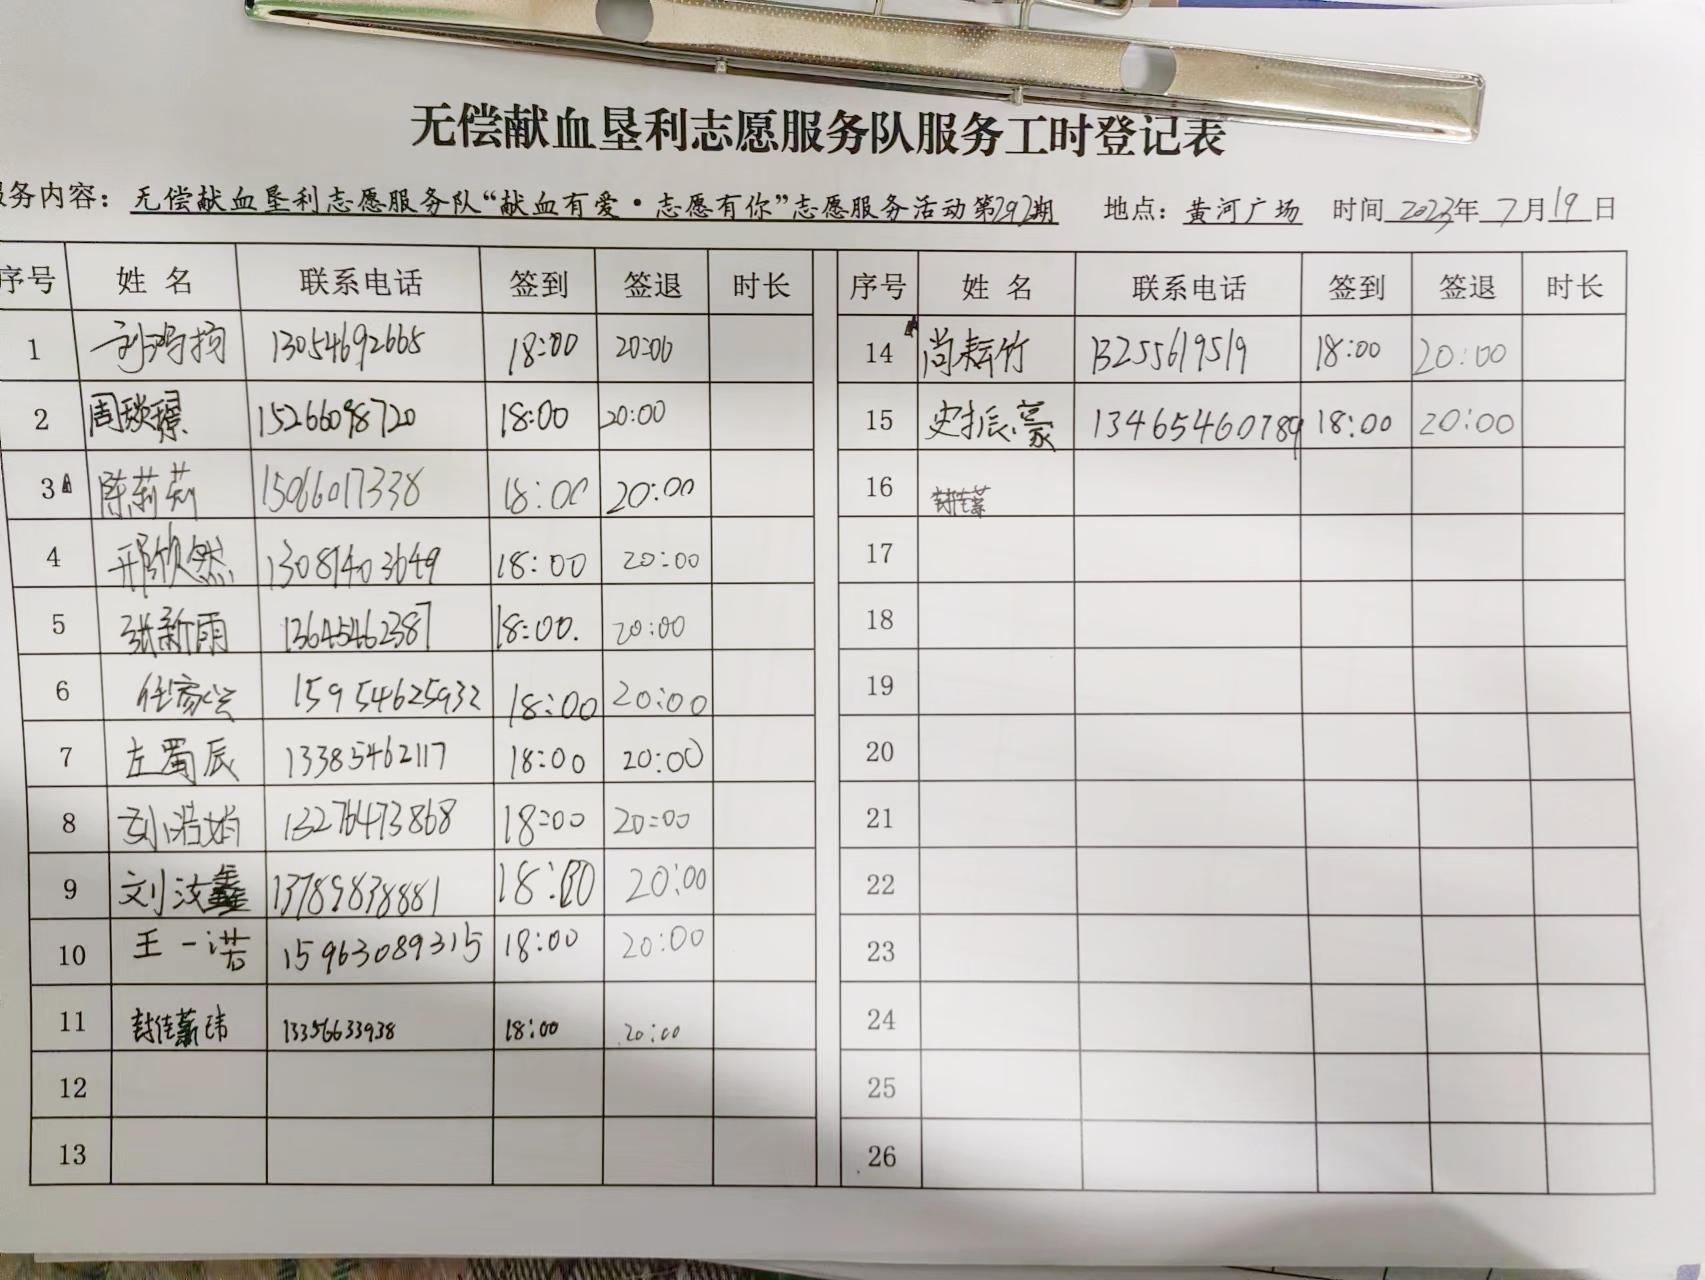 无偿献血垦利志愿服务队服务工时登记表
服务内容：无偿献血垦利志愿服务队“献血有爱·志愿有你”志愿服务活动第292期 地点：黄河广场 时间 2023年 7月19日
序号 姓名 联系电话 签到 签退 时长 序号 姓名 联系电话 签到 签退 时长
1 13054692665 18:00 20:00 14 尚耘竹 13255619519 18:00 20:00
2 周琰璟 15266098720 18:00 20:00 15 史振豪 13465460789 18:00 20:00
3 陈莉莉 15066017338 18:00 20:00 16
4 邢欣然 13081403649 18:00 20:00 17
5 张新雨 13645462387 18:00. 20:00 18
6 15954625932 18:00 20:00 19
7 左蜀辰 13385462117 18:00 20:00 20
8 刘浩娟 13276473868 18:00 20:00 21
9 刘汝鑫 13789838881 18:00 20:00 22
10 王一诺 15963089315 18:00 20:00 23
11 13356633938 18:00 20:00 24
12 25
13 26